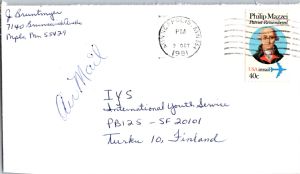 J Bruntmyer
7140 Brunswick
Mpls. Mn 55429
Air Mail
MINNEAPOLIS
PM
2 OCT
1981
Philip Mazzei
Patriot Remembered
USA Airmail
40c
IYS
International Youth Service
PB125 - SF 20101
Turku 10, Finland